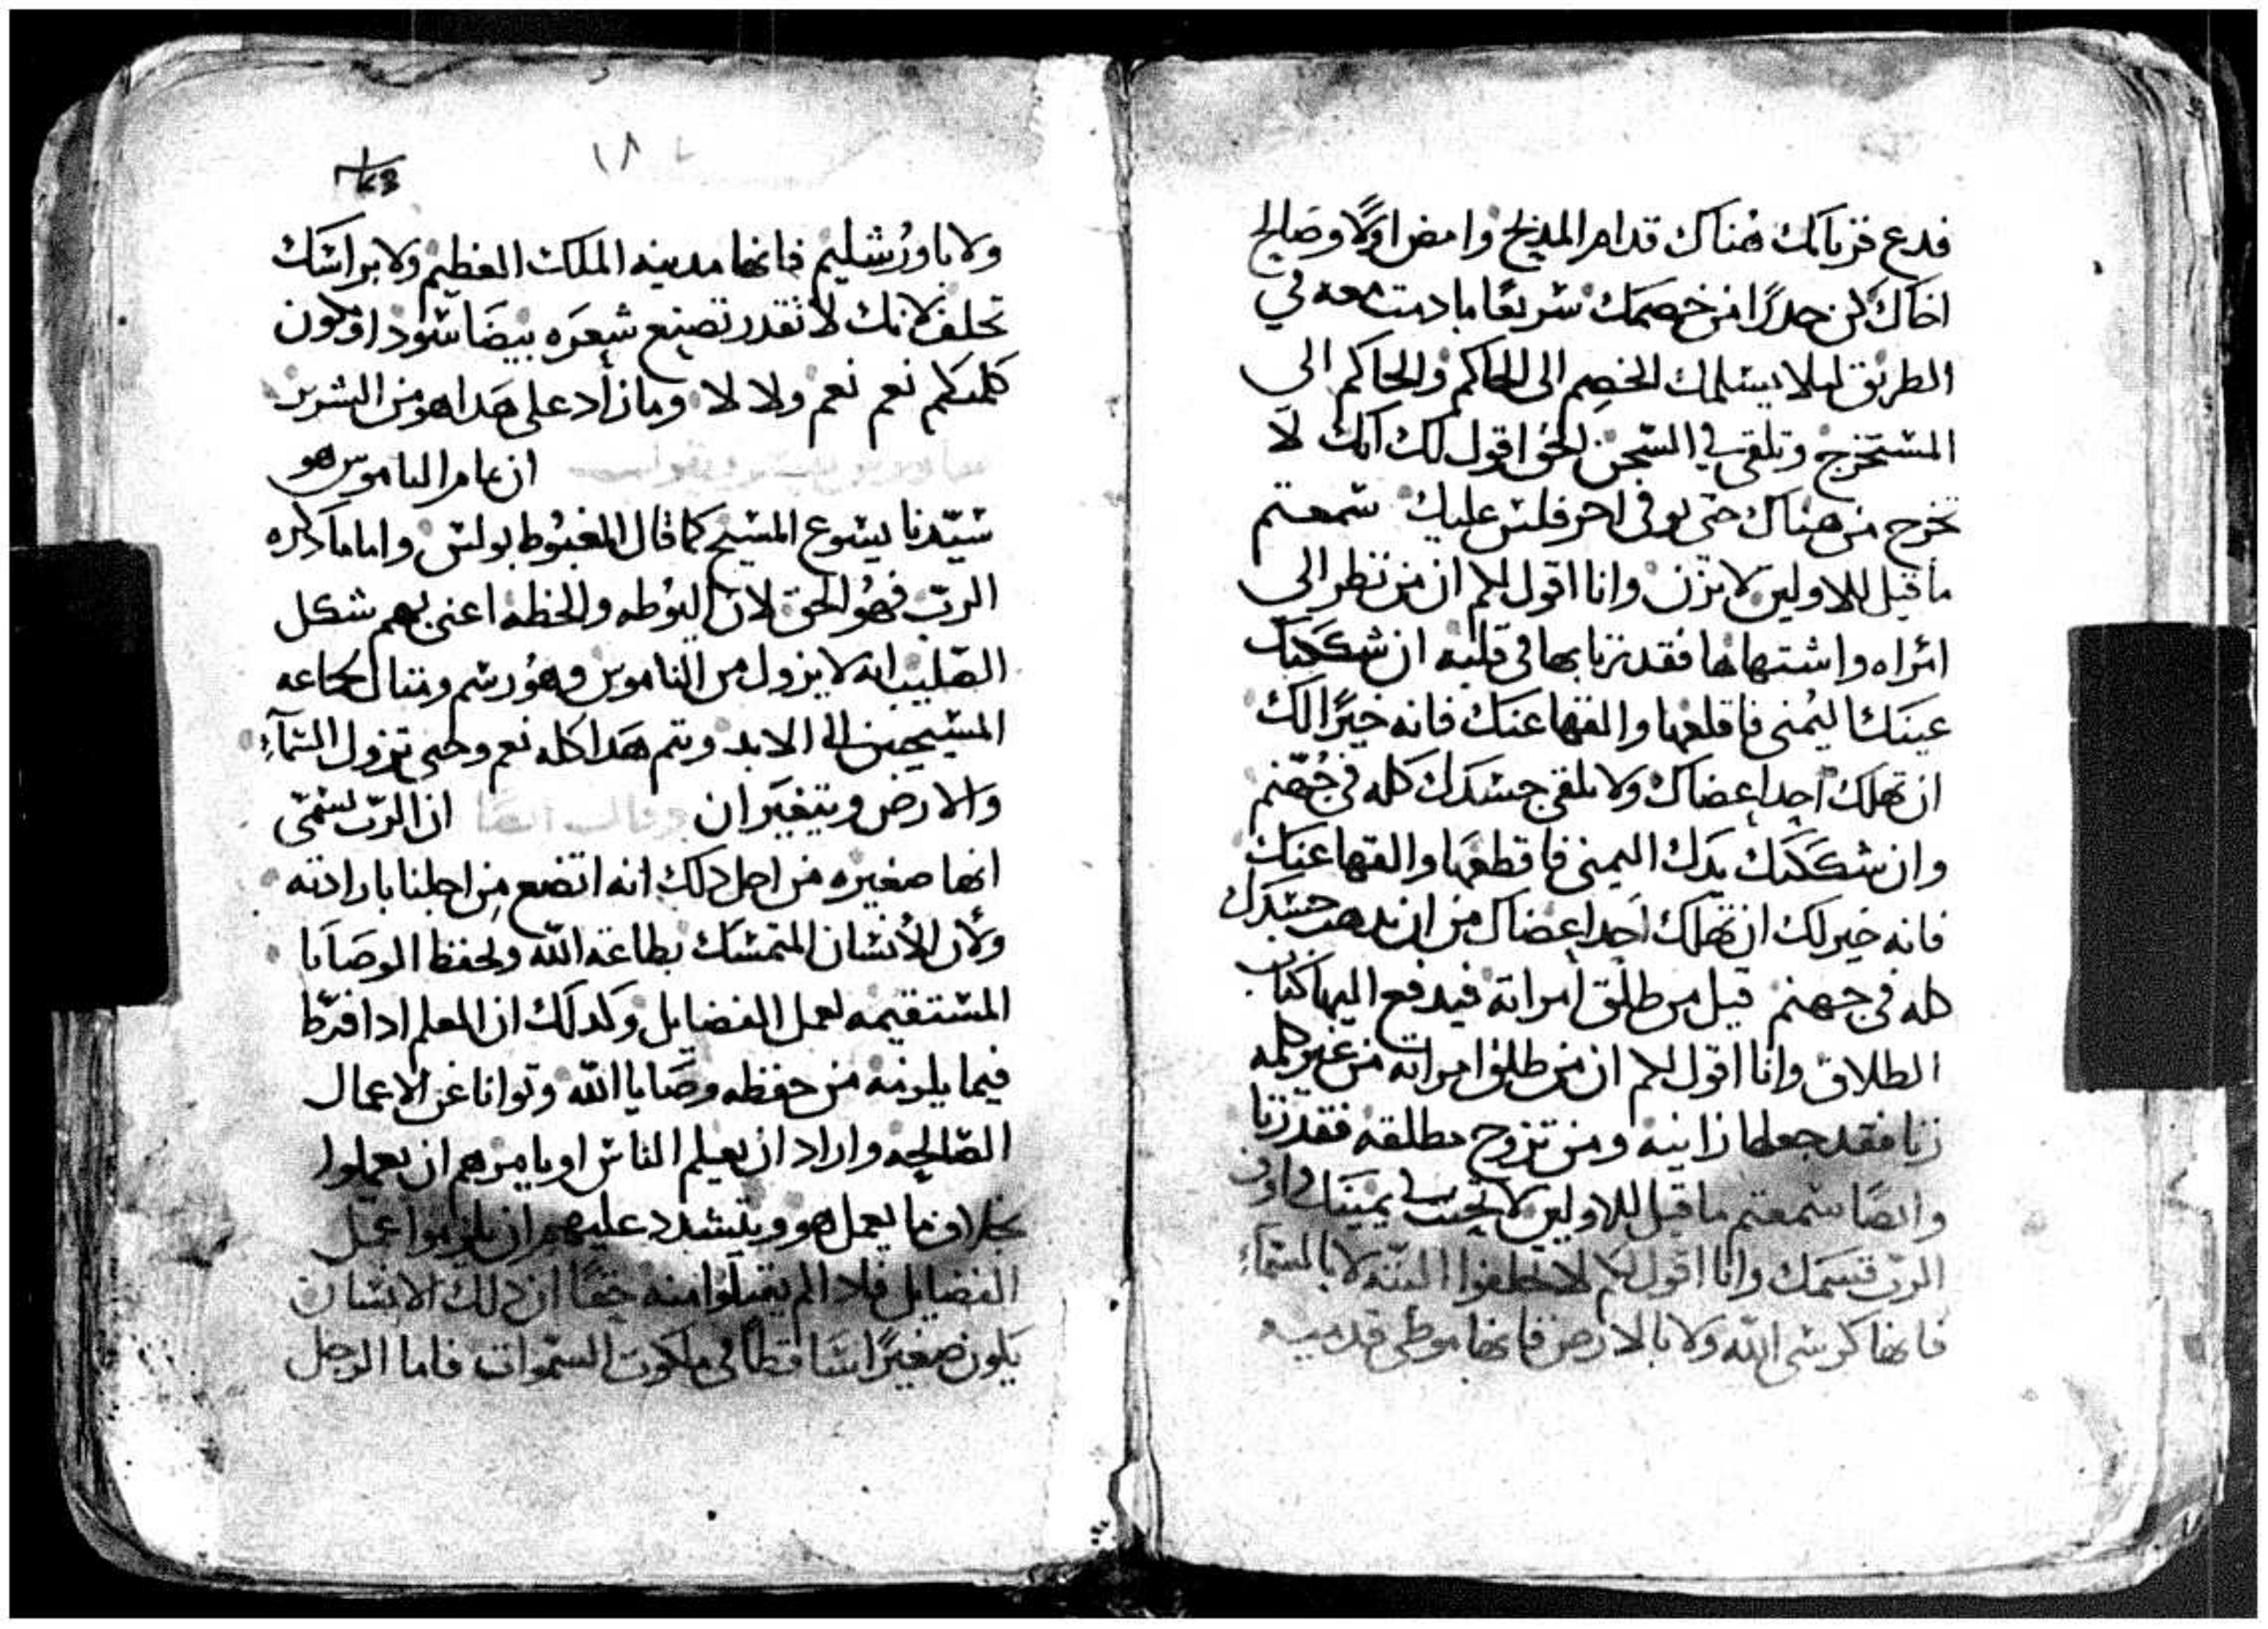 فدع قربانك هناك قدام المذبح وامض اولا وصالح
اخاك كن حدرا من خصمك سريعا ما دمت معه في
الطريق ليلا يسلمك الخصم الى الحاكم والحاكم الى
المستخرج وتلقى في السجن الحق اقول لك انك لا
تخرج من هناك حتى توفى اخر فلس عليك سمعتم
ما قيل للاولين لا تزن وانا اقول لكم ان من نظر الى
امراه واشتهاها فقد زنا بها في قلبه ان شككتك
عينك اليمنى فاقلعها والقها عنك فانه خيرا لك
ان تهلك احد اعضاك ولا يلقى جسدك كله في جهنم
وان شككتك يدك اليمنى فاقطعها والقها عنك
فانه خير لك ان تهلك احد اعضاك من ان يدهب جسدك
كله في جهنم قيل من طلق امراته فيدفع اليها كتاب
الطلاق وانا اقول لكم ان من طلق امراته من غير كلمه
زنا فقد جعلها زانيه ومن تزوج مطلقه فقد زنا
وايضا سمعتم ما قيل للاولين لا تحنث في يمينك واوف
الرب قسمك وانا اقول لكم لا تحلفوا البته لا بالسمآء
فانها كرسي الله ولا بالارض فانها موطى قدميه
١٨
ولا باورشليم فانها مدينه الملك العظيم ولا براسك
تحلف لانك لا تقدر تصنع شعره بيضا اسودا وتكون
كلمتكم نعم نعم ولا لا وما زاد على هدا هو من الشرير
ان عام الناموس هو
سيدنا يسوع المسيح كما قال المغبوط بولس واما ما ذكره
الرب فهو الحق لان اليوطه والخطه اعنى بهم شكل
الصليب انه لا يزول من الناموس وهو رسم ومثال لجماعه
المسيحيين الى الابد ويتم هدا كله نعم وحتى تزول السمآء
والارض ويتغيران وقال ايضا ان الرب سمى
انها صغيره من اجل ذلك انه اتضع من اجلنا بارادته
ولأن الانسان المتمسك بطاعة الله ويحفظ الوصايا
المستقيمه لعمل الفضايل وكدلك ان المعلم ادا فرط
فيما يلزمه من حفظه وصايا الله وتوانا عن الاعمال
الصالحه واراد ان يعلم الناس او يامرهم ان يعملوا
بخلاف ما يعمل هو ويتشدد عليهم ان يلزموا عمل
الفضايل فلاد الم يقبلوا منه حقا ان ذلك الانسان
يكون صغيرا ساقطا في ملكوت السموات فاما الرجل